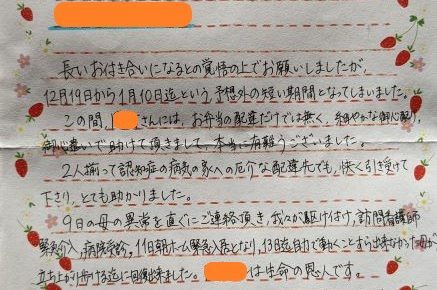 長いお付き合いになるとの覚悟の上でお願いしましたが、
12月19日から1月10日迄という、予想外の短い期間となってしまいました。
この間、さんには、お弁当の配達だけでは無く、細やかな御心配り、
御心遣いで助けて頂きまして、本当に有難うございました。
2人揃って認知症の病気の家への厄介な配達先でも、快く引受けて
下さり、とても助かりました。
9日の母の異常を直ぐにご連絡頂き、我々が駆け付け、訪問看護師
緊急介入、病院受診、11日朝ホーム緊急入居となり、13日迄自力で動くことすら出来なかった母が
立ち上がり歩ける迄に回復出来ました。は生命の恩人です。